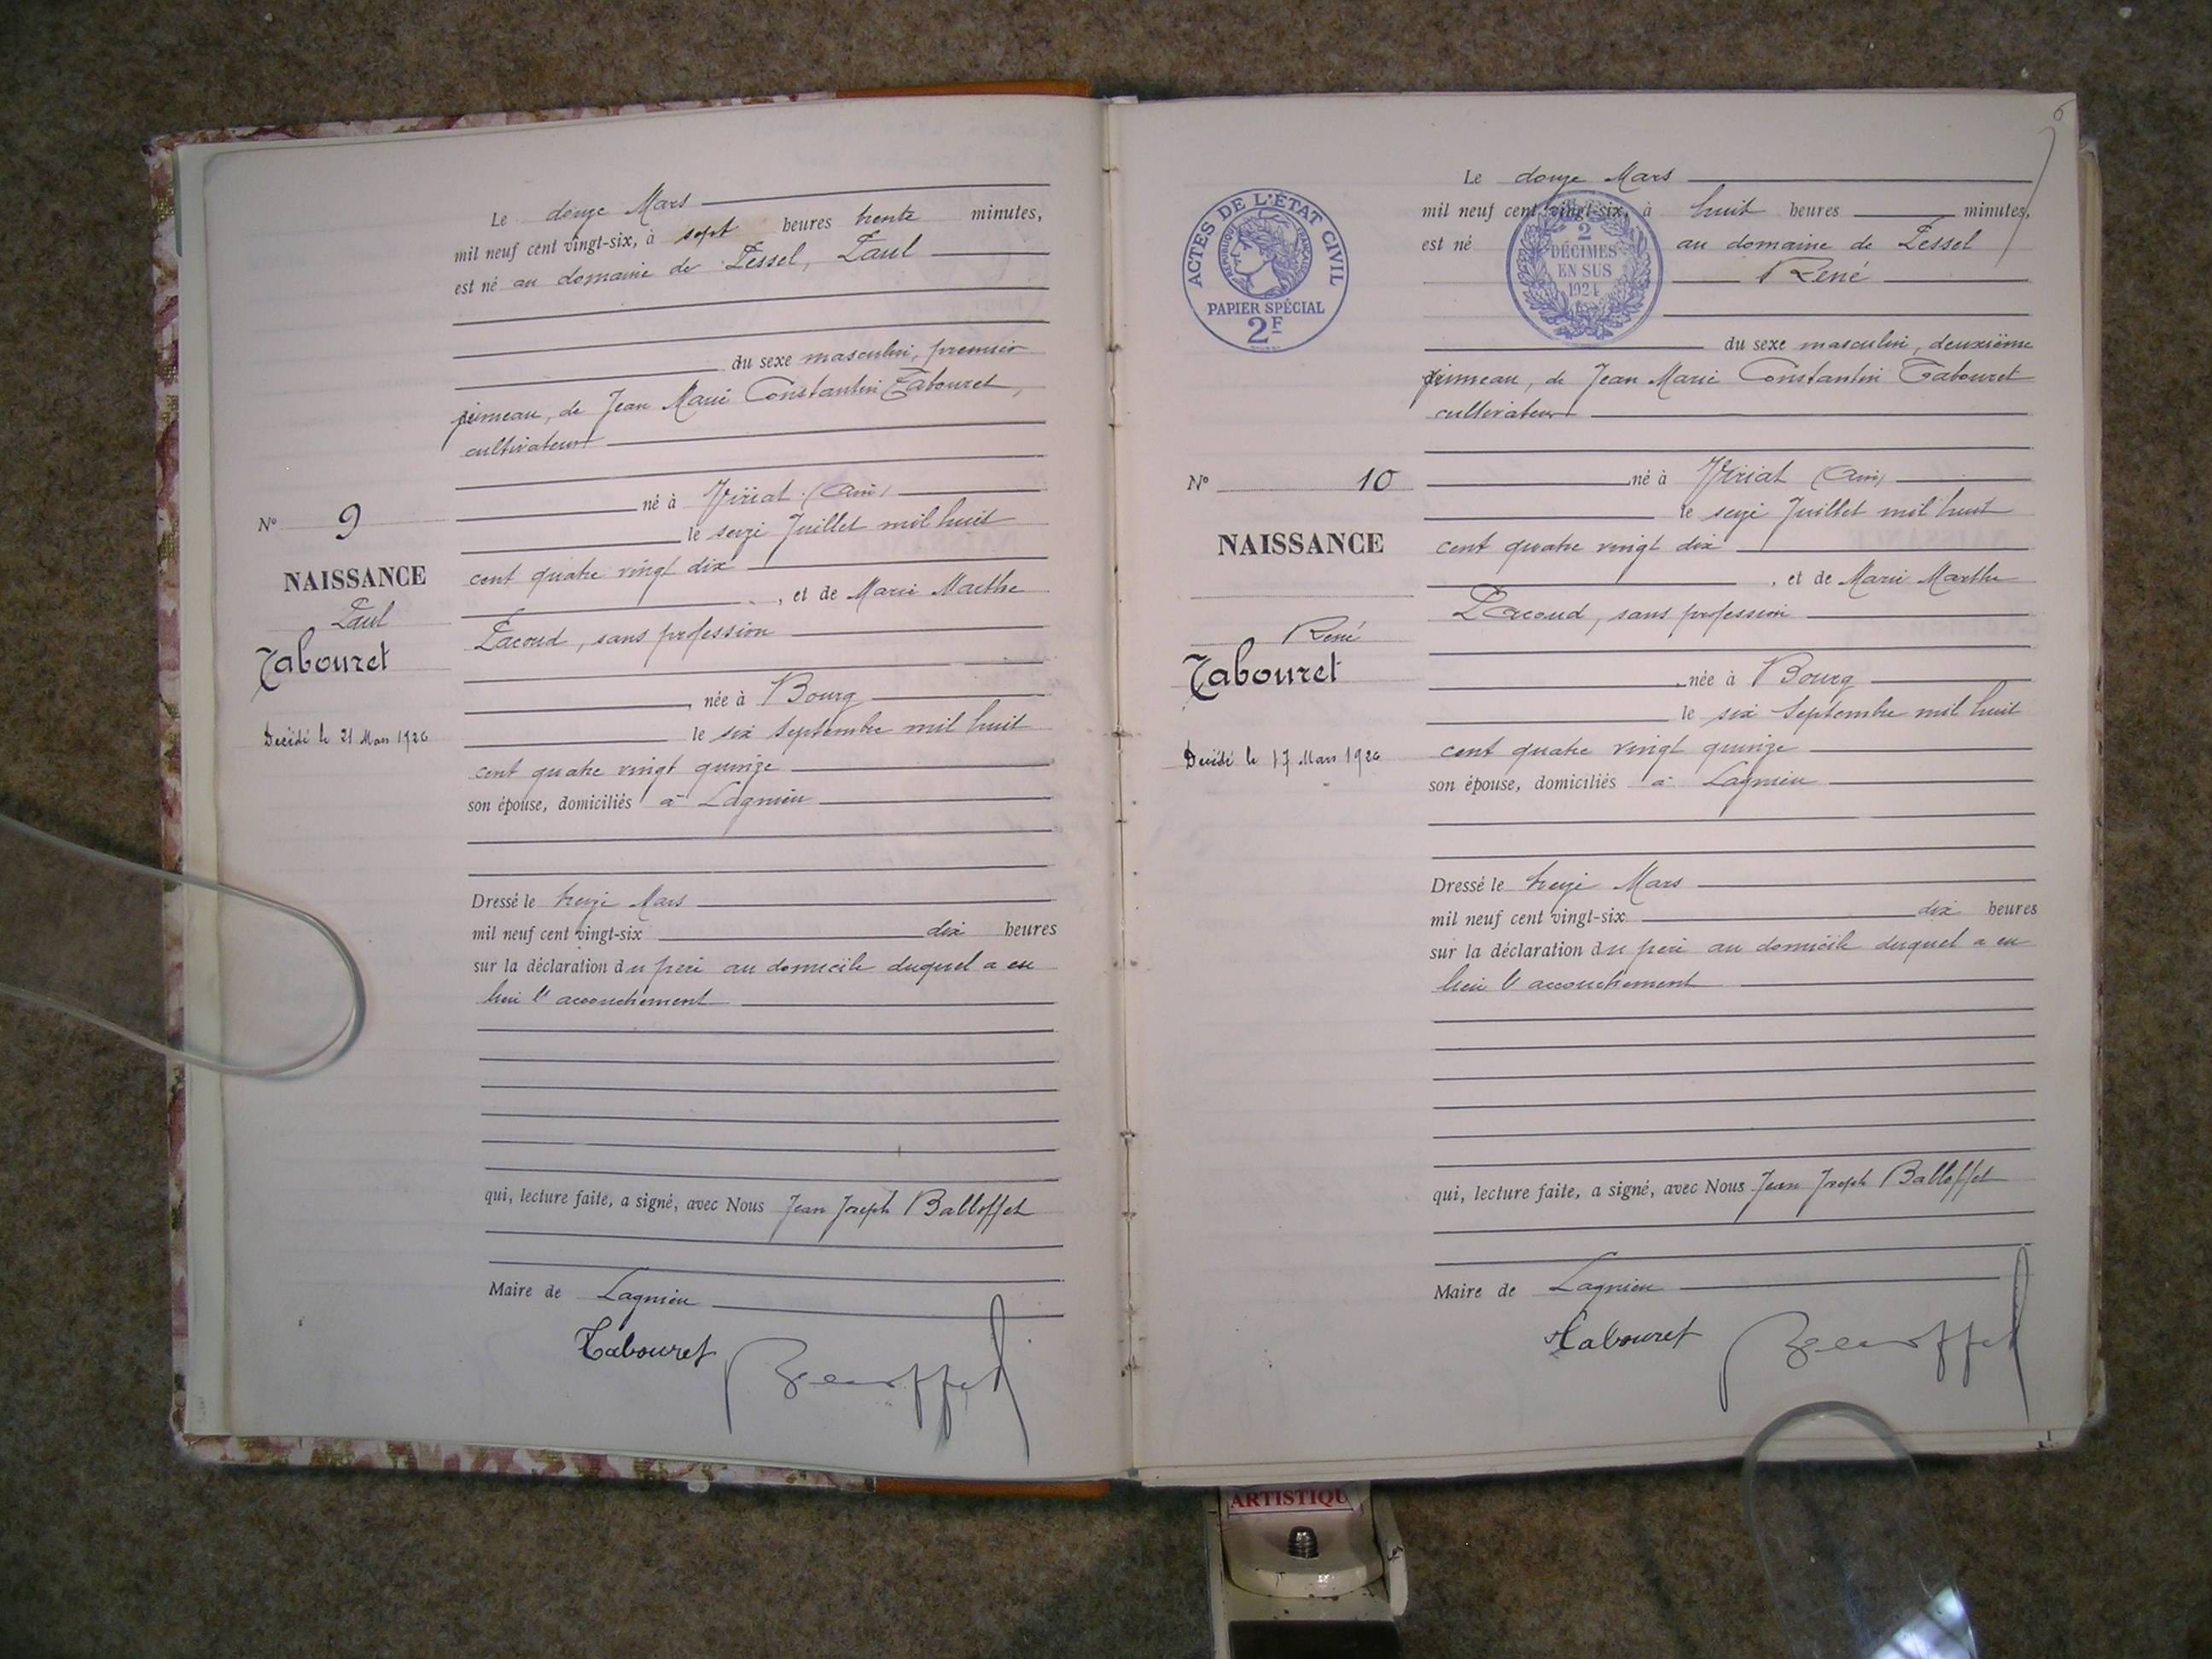 Le douze Mars
mil neuf cent vingt-six, à sept heures trente minutes,
est né au domaine de Pessel, Paul
du sexe masculin, premier
jumeau, de Jean Marie Constantin Tabouret,
cultivateur
né à Viriat (Ain)
le seize Juillet mil huit
cent quatre vingt dix
, et de Marie Marthe
Pacoud, sans profession
, née à Bourg
le six Septembre mil huit
cent quatre vingt quinze
son épouse, domiciliés à Lagnieu
Dressé le treize Mars
mil neuf cent vingt-six dix heures
sur la déclaration du père au domicile duquel a eu
lieu l'accouchement
qui, lecture faite, a signé, avec Nous Jean Joseph Balloffet
Maire de Lagnieu
Tabouret
N° 9
NAISSANCE
Paul
Tabouret
Décédé le 21 Mars 1926
6
ACTES DE L'ÉTAT CIVIL
RÉPUBLIQUE FRANÇAISE
PAPIER SPÉCIAL
2F
2
DÉCIMES
EN SUS
1924
Le douze Mars
mil neuf cent vingt-six, à huit heures minutes,
est né au domaine de Pessel
René
du sexe masculin, deuxième
jumeau, de Jean Marie Constantin Tabouret
cultivateur
né à Viriat (Ain)
le seize Juillet mil huit
cent quatre vingt dix
, et de Marie Marthe
Pacoud, sans profession
, née à Bourg
le six Septembre mil huit
cent quatre vingt quinze
son épouse, domiciliés à Lagnieu
Dressé le treize Mars
mil neuf cent vingt-six dix heures
sur la déclaration du père au domicile duquel a eu
lieu l'accouchement
qui, lecture faite, a signé, avec Nous Jean Joseph Balloffet
Maire de Lagnieu
Tabouret
N° 10
NAISSANCE
René
Tabouret
Décédé le 17 Mars 1926
ARTISTIQU